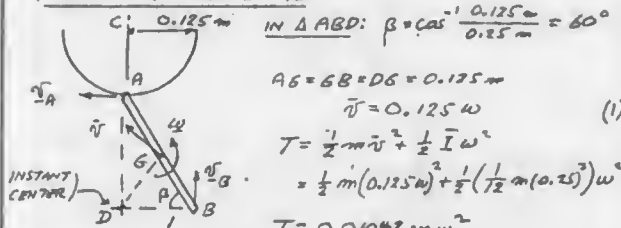 C 0.125 m
IN Δ ABD: β = cos⁻¹ 0.125 m / 0.25 m = 60°
A
AG = GB = DG = 0.125 m
v_A
v̄ = 0.125 ω (1)
v̄ ω
T = 1/2 m v̄² + 1/2 Ī ω²
G v_B
= 1/2 m(0.125ω)² + 1/2(1/12 m(0.25)²)ω²
INSTANT
CENTER
β
D B